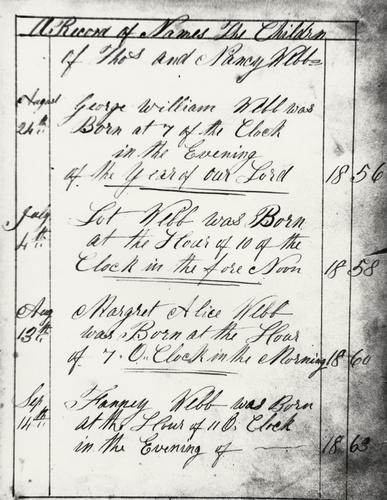 A Record of Names The Childrn
of Thos and Nancy Webb
August George William Webb was
24th Born at 7 of the Clock
in the Evening
of the Year of Our Lord 1856
July Lot Webb was Born
4th at the Hour of 10 of the
Clock in the fore Noon 1858
Aug Margret Alice Webb
13th was Born at the Hour
of 7. O. Clock in the Morning 1860
Sep Fanney Webb was Born
14th at the Hour of 11 O. Clock
in the Evening of 1863